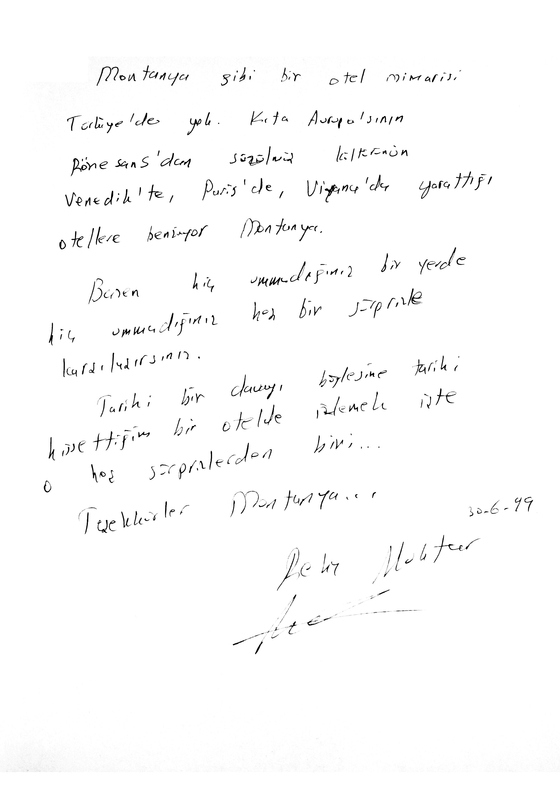 Montanya gibi bir otel mimarisi
Türkiye'de yok. Kıta Avrupa'sının
Rönesans'dan süzülmüş kültürünün
Venedik'te, Paris'de, Viyana'da yarattığı
otellere benziyor Montanya.
Bazen hiç ummadığınız bir yerde
hiç ummadığınız hoş bir sürprizle
karşılaşırsınız.
Tarihi bir davayı böylesine tarihi
hissettiğim bir otelde izlemek işte
o hoş sürprizlerden biri...
Teşekkürler Montanya...
30-6-99
Reha Muhtar